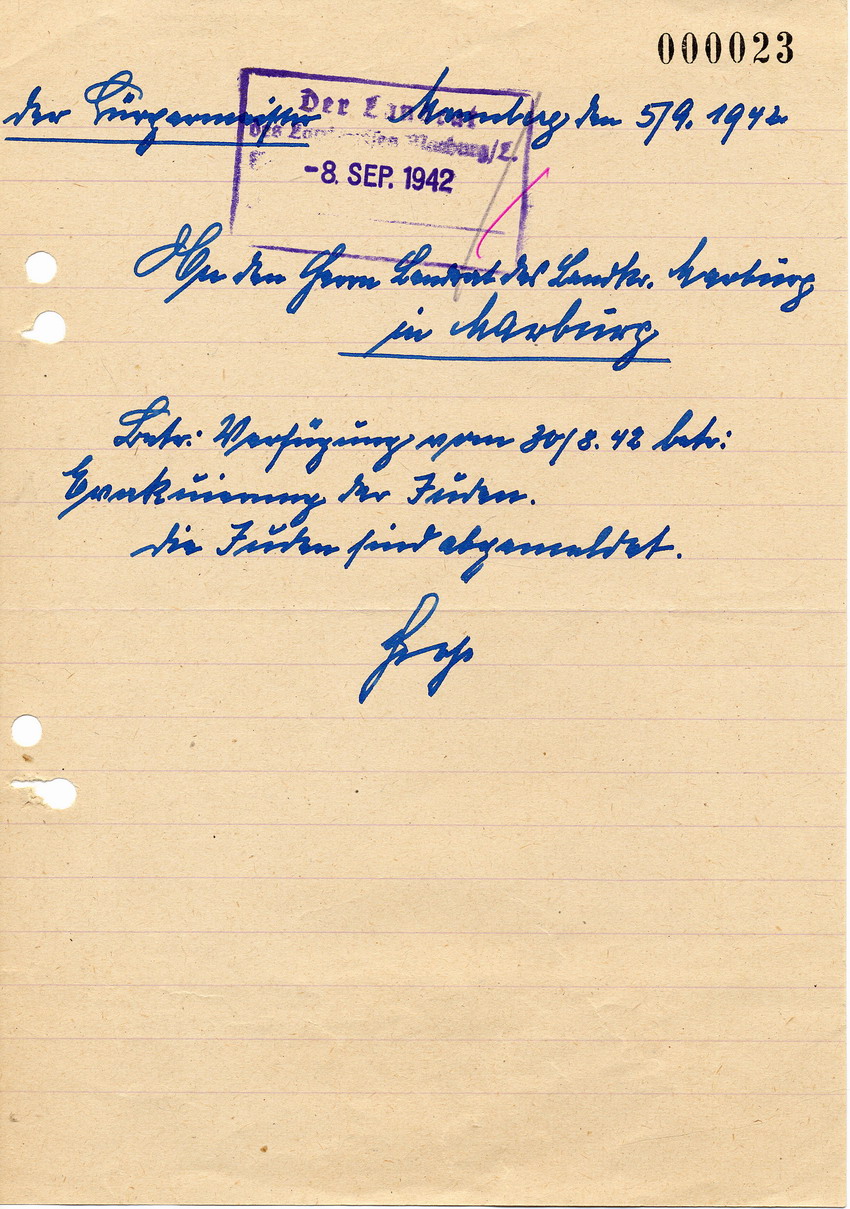 000023
der Bürgermeister Momberg, den 5/9. 1942
Der Landrat
des Landkreises Marburg/L.
-8. SEP. 1942
An den Herrn Landrat des Landkr. Marburg
in Marburg
Betr: Verfügung vom 30/8. 42 betr:
Evakuierung der Juden.
die Juden sind abgemeldet.